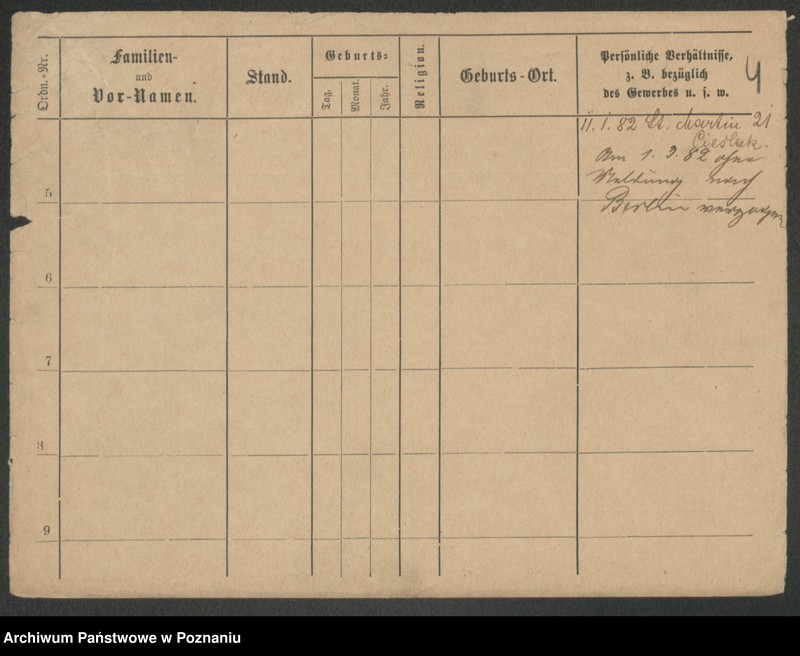 Ordn.-Nr.
Familien-
und
Vor-Namen.
Stand.
Geburts-
Tag.
Monat.
Jahr.
Religion.
Geburts-Ort.
Persönliche Verhältnisse,
z. B. bezüglich
des Gewerbes u. s. w.
4
11. 1. 82 St. Martin 21
Cieslak.
Am 1. 3. 82 ohne
Meldung nach
Berlin verzogen
5
6
7
8
9
Archiwum Państwowe w Poznaniu